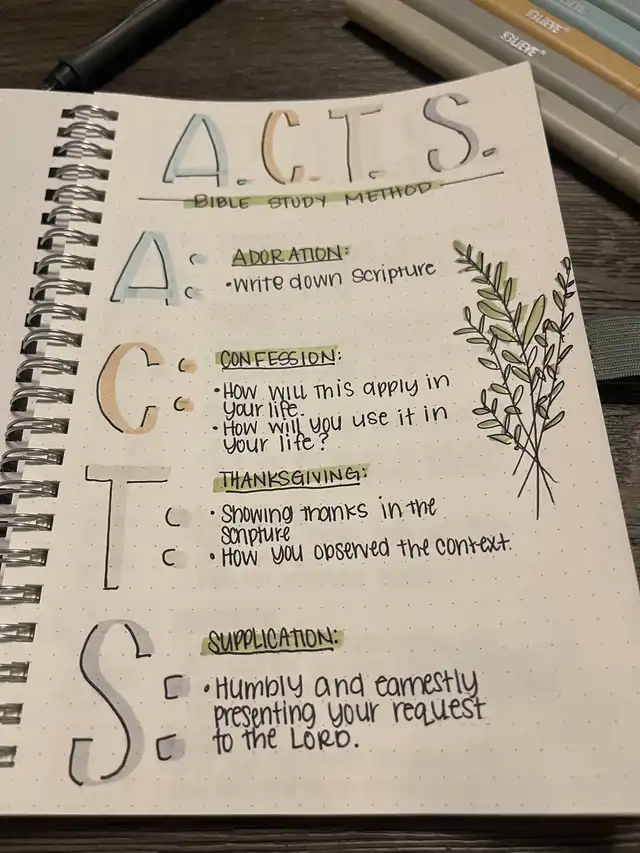 A.C.T.S.
BIBLE STUDY METHOD
A:
ADORATION:
•Write down Scripture
C:
CONFESSION:
•How will This apply in
your life.
•How will you use it in
your life?
T:
THANKSGIVING:
•Showing thanks in the
Scripture
•How you observed the context.
S:
SUPPLICATION:
•Humbly and earnestly
presenting your request
to the LORD.